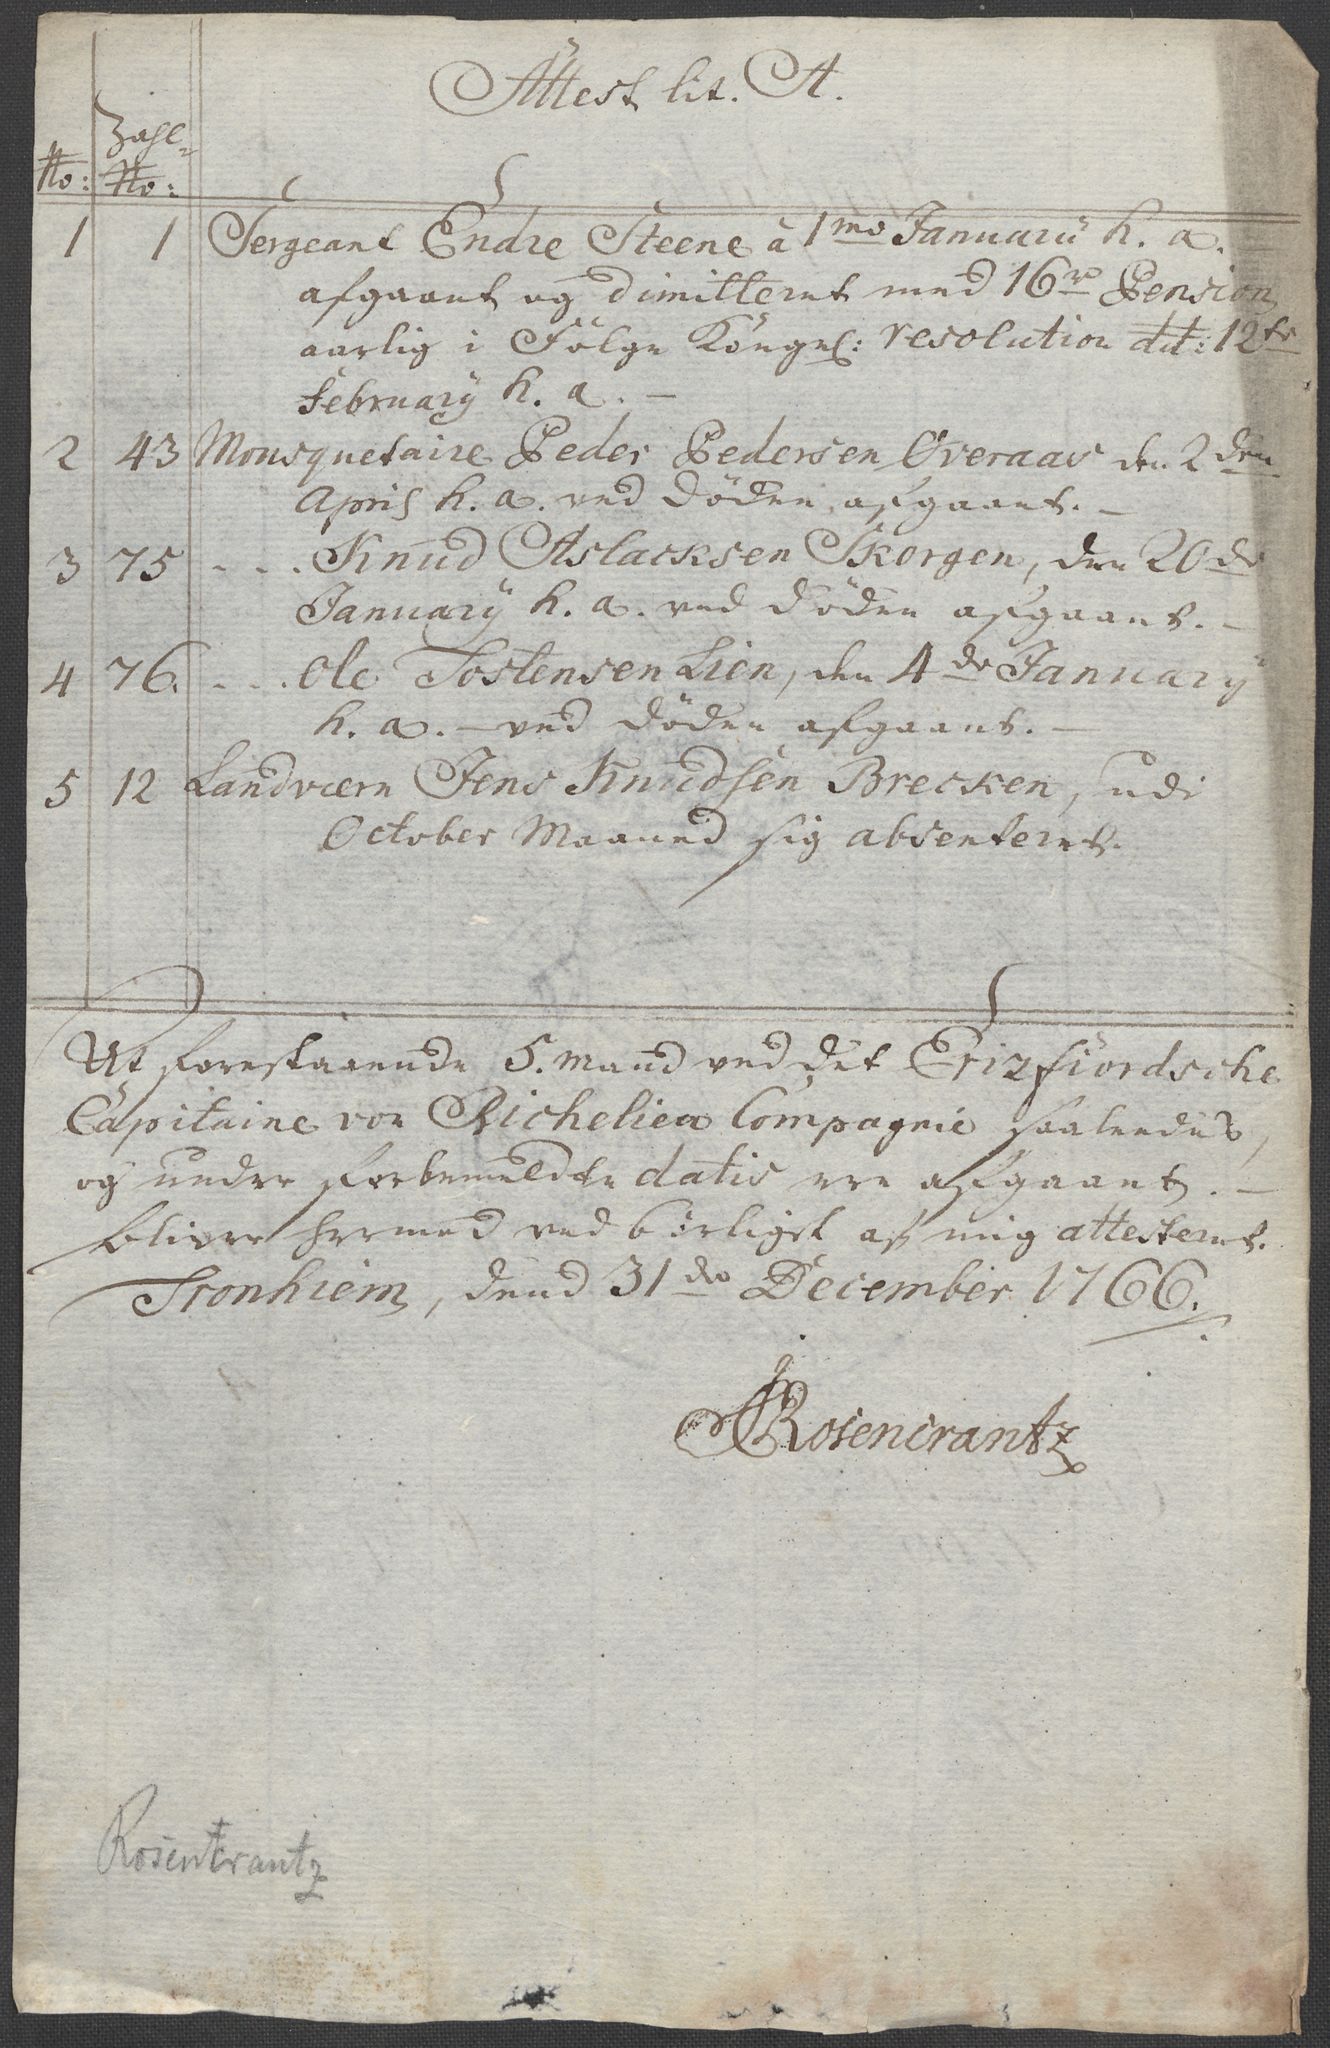 Attest lit. A.
No: Zahl-No:
1 1 Sergeant Endre Steene à 1mo Januarÿ h. a.
afgaaet og dimitteret med 16 rd Pension
aarlig i Fölge Köngel: resolution dat: 12te
februarÿ h. a. –
2 43 Mousquetaire Peder Pedersen Overaas den 2den
April h. a. ved Döden afgaaet. –
3 75 - - - Knud Aslacksen Skorgen, den 20de
Januarÿ h. a. ved döden afgaaet. –
4 76. - - - Ole Tostensen Lien, den 4de Januarÿ
h. a. – ved döden afgaaet. –
5 12 Landværn Jens Knudsen Brecken, udi
October Maaned sig absenteret.
At forestaaende 5. Mand ved det Erizfiordsche
Capitaine von Richelieu Compagnie saaledes,
og under forbemeldte datis ere afgaaet. –
bliver hermed ved börligst af mig attesteret.
Tronhiem, dend 31de December 1766.
Rosencrantz
Rosentrantz